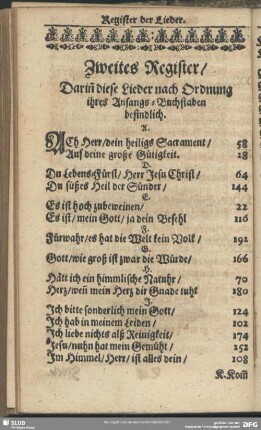 Register der Lieder.
Zweites Register/
Dariñ diese Lieder nach Ordnung
ihres Anfangs-Buchstaben
befindlich.
A.
ACh Herr/dein heiligs Sacrament/ 58
Auf deine große Gütigkeit. 28
D.
Du Lebens-Fürst/Herr Jesu Christ/ 64
Du süßes Heil der Sünder/ 144
E.
Es ist hoch zubeweinen/ 22
Es ist/mein Gott/ja dein Befehl 116
F.
Fürwahr/es hat die Welt kein Volk/ 192
G.
Gott/wie groß ist zwar die Würde/ 166
H.
Hätt ich ein himmlische Natuhr/ 70
Herz/weñ mein Herz dir Gnade tuht 180
I.
Ich bitte sonderlich mein Gott/ 124
Ich hab in meinem Leiden/ 102
Ich liebe nichts alß Reinigkeit/ 174
Jesu/nuhn hat mein Gemüht/ 152
Im Himmel/Herr/ist alles dein/ 108
K.Kom̃
SLUB
DFG